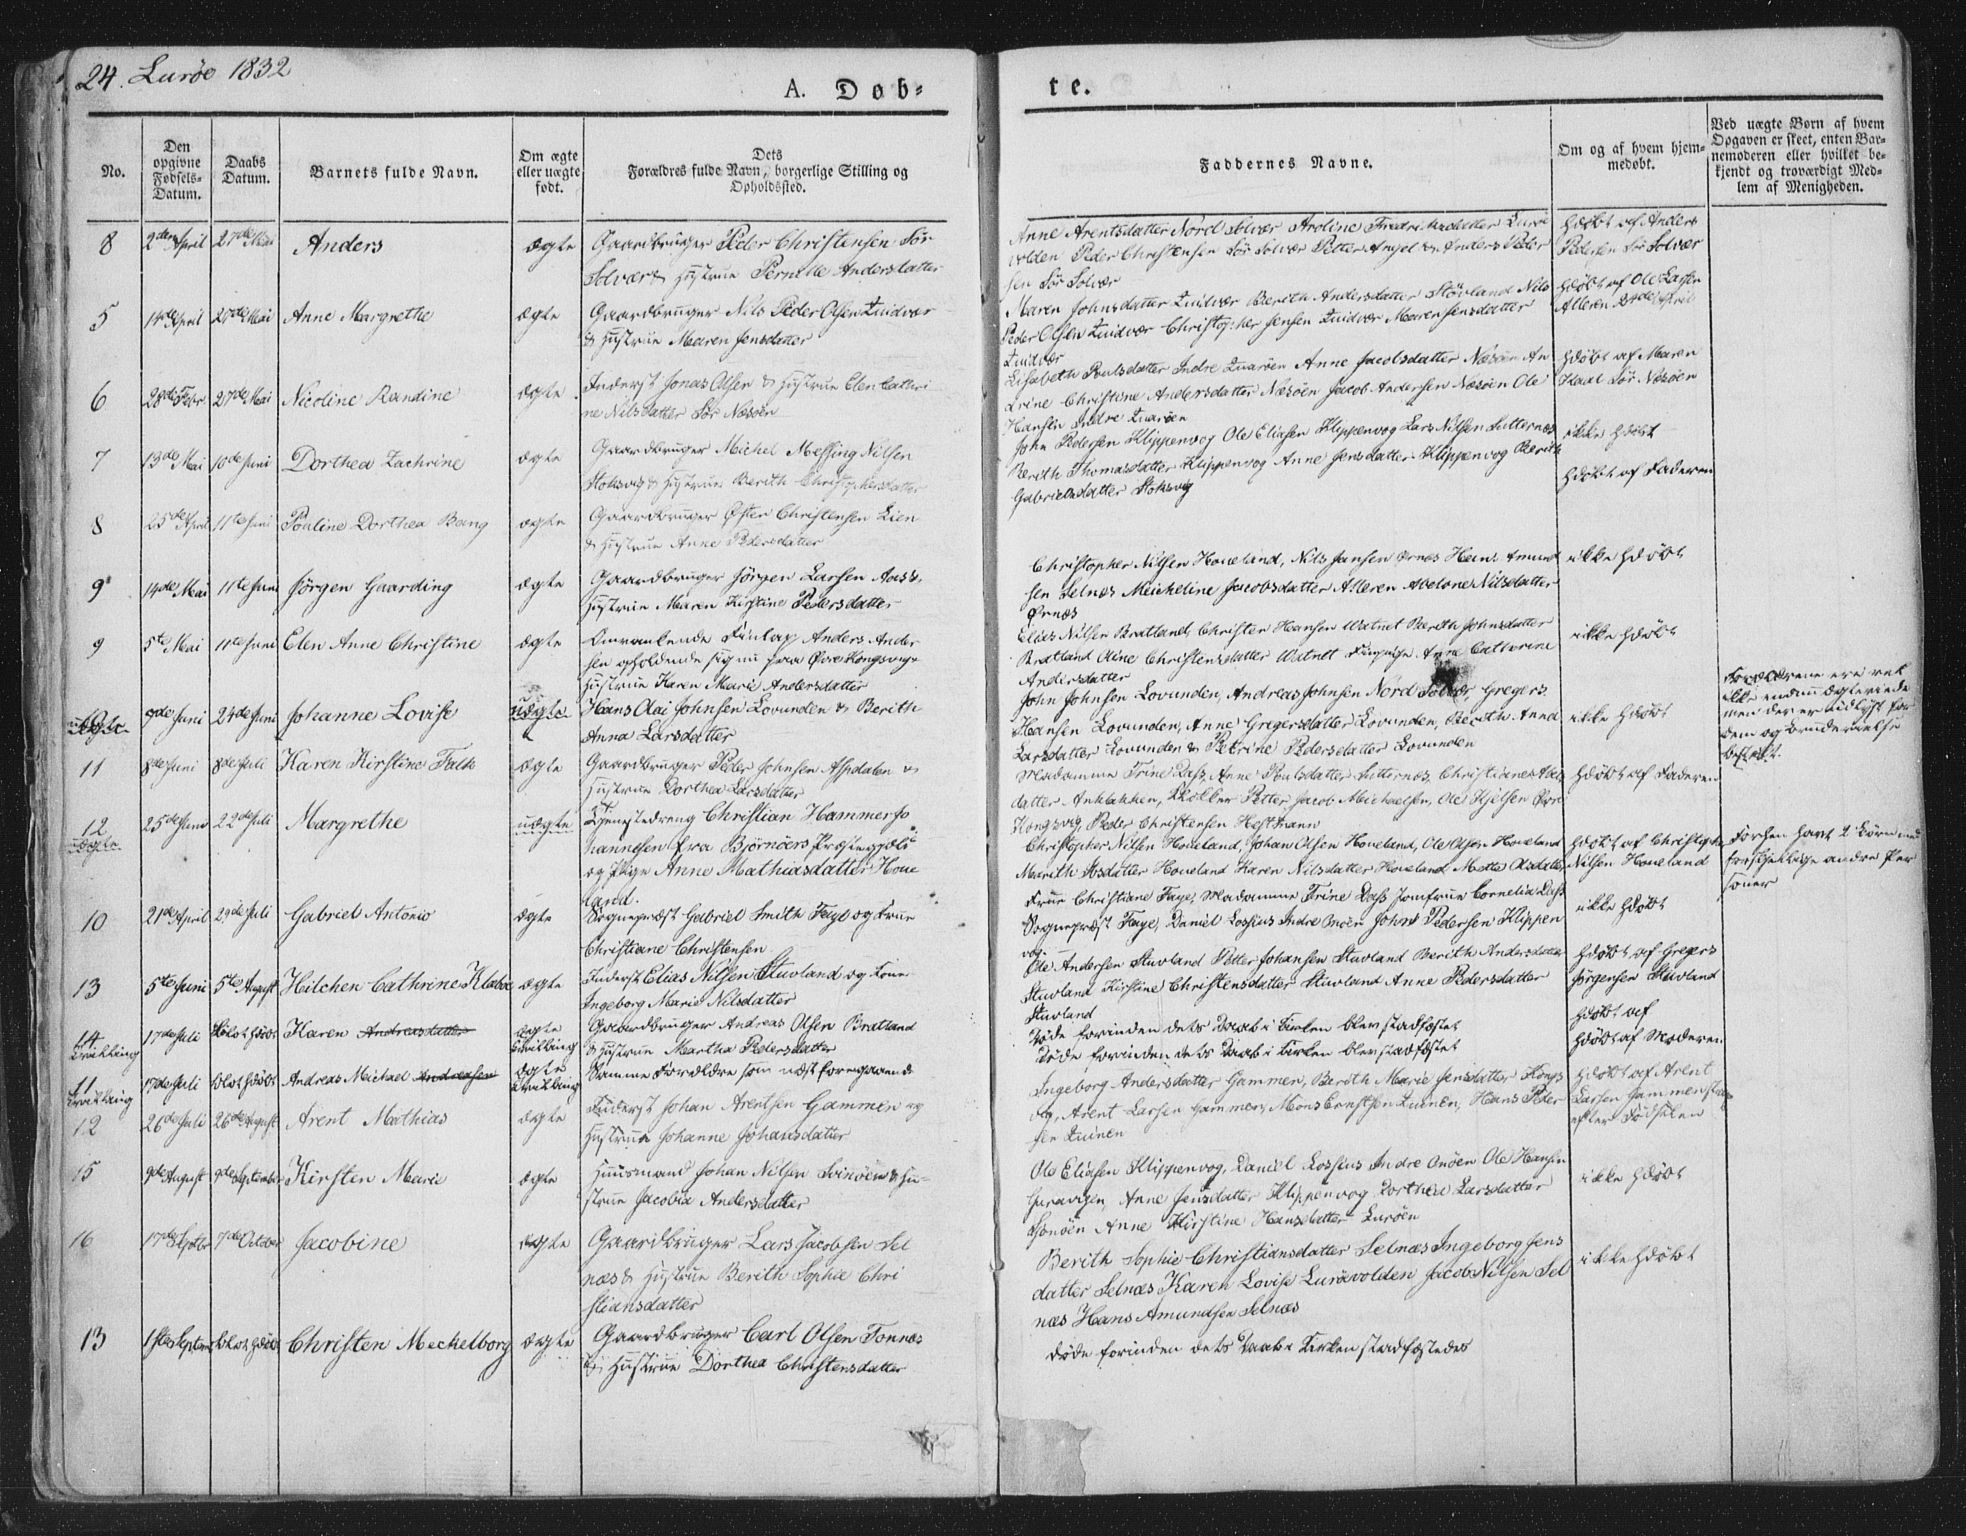 24. Lurøe 1832
A. Døb-
te.
No.
Den opgivne Fødsels-Datum.
Daabs Datum.
Barnets fulde Navn.
Om ægte eller uægte født.
Dets Forældres fulde Navn, borgerlige Stilling og Opholdssted.
Faddernes Navne.
Om og af hvem hjemmedøbt.
Ved uægte Børn af hvem Opgaven er skeet, enten Barnemoderen eller hvilket bekjendt og troværdigt Medlem af Menigheden.
8 2den April 27de Mai Anders ægte Gaardbruger Peder Christensen Sør
Solvær & Hustrue Pernille Andersdatter
Anne Arentsdatter Nord Solvær Aroline Fredriksdatter Lurøe
volden Peder Christensen Sør Solvær Petter Angel Anders Peder
sen Sør Solvær
Hdøbt af Anders
Pedersen Sør Solvær
5 14de April 27de Mai Anne Margrethe ægte Gaardbruger Nils Peder Olsen Qvidvær
& Hustrue Maren Jensdatter
Maren Johnsdatter Qvidvær Berith Andersdatter Støvland Nils
Peder Olsen Qvidvær Christopher Jensen Qvidvær Maren Jensdatter
Qvidvær
Hdøbt af Ole Larsen
Alleren
6 28de Febr 27de Mai Nicoline Randine ægte Inderst Jonas Olsen & Hustrue Elen Cathri
ne Nilsdatter Sør Næsøen
Elisabeth Poulsdatter Indre Qvarøen Anne Jacobsdatter Næsøen An
Christine Andersdatter Næsøen Jacob Andersen Næsøen Ole
Hansen Indre Qvarøen
Hdøbt af Maren
Sør Næsøen
7 13de Mai 10de Juni Dorthea Zachrine ægte Gaardbruger Michel Messing Nilsen
Stoksvig & Hustrue Berith Christophersdatter
John Pedersen Klippenvog Ole Eliasen Klippenvog Lars Nilsen Sutternæs
Berith Thomasdatter Klippenvog Anne Jensdatter Klippenvog Berith
Gabrielsdatter Stoksvig
ikke Hdøbt
8 25de April 11te Juni Pouline Dorthea Bang ægte Gaardbruger Østen Christensen Lien
& Hustrue Anne Pedersdatter
Hdøbt af Faderen
9 14de Mai 11te Juni Jørgen Gaarding ægte Gaardbruger Jørgen Larsen Aas &
Hustrue Maren Kirstine Pedersdatter
Christopher Nilsen Hoveland, Nils Jansen Ørnes Hein Amund
sen Selnæs Meicheline Jacobsdatter Alleren Abelone Nilsdatter
Ørnæs
ikke Hdøbt
9 5te Mai 11te Juni Elen Anne Christine ægte Omvankende Finlap Anders Ander
sen opholdende sig nu paa Øvre Kongsvig
Hustrue Karen Marie Andersdatter
Elias Nilsen Bratland, Christen Hansen Watnet Berith Johnsdatter
Bratland Oline Christensdatter Watnet Anne Cathrine
Andersdatter
ikke Hdøbt
10 uægte 9de Juni 24de Juni Johanne Lovise uægte Hans Olai Johnsen Lovunden & Berith
Anna Larsdatter
John Johnsen Lovunden, Andreas Johnsen Nord Solvær, Gregers
Hansen Lovunden, Anne Gregersdatter Lovunden, Berith Anna
Larsdatter Lovunden & Petrine Pedersdatter Lovunden
ikke Hdøbt
Forældrene ere vel
ikke endnu ægteviede
men der er tillyst for
dem
11 8de Juni 8de Juli Karen Kirstine Falk ægte Gaardbruger Peder Johnsen Aspdalen &
Hustrue Dorthea Larsdatter
Madamme Trine Dass, Anne Poulsdatter Sutternæs, Christiane Abel
datter Petter Jacob Michaelsen, Ole Nilsen Øvre
Kongsvig Peder Christensen Hestmann
Hdøbt af Faderen
12 uægte 25de Juni 22de Juli Margrethe uægte Tjenestedreng Christian Hammer Jo
hannesen fra Bjørnøers Præstegjeld
og Pige Anne Mathiasdatter Hove
land.
Christopher Nilsen Hoveland, Johan Olsen Hoveland, Ole Olsen Hoveland
Marith Isdatter Hoveland Karen Nilsdatter Hoveland Mette Olsdatter
Hdøbt af Christopher
Nilsen Hoveland
Før hen havt 2 Børn med
forskjellige andre Per
soner
10 21de April 29de Juli Gabriel Antonio ægte Sognepræst Gabriel Smith Faye og Frue
Christiane Christensen
Frue Christiane Faye, Madamme Trine Dass Jomfrue Cornelia Dass
Sognepræst Faye, Daniel Lossius Indre Onøen Johns Pedersen Klippen
vog
ikke Hdøbt
13 5te Juni 5te August Hilchen Cathrine Klæboe ægte Inderst Elias Nilsen Stuvland og Kone
Ingeborg Marie Nilsdatter
Ole Andersen Stuvland Petter Johansen Stuvland Berith Andersdatter
Stuvland Kirstine Christensdatter Stuvland Anne Pedersdatter
Stuvland
Hdøbt af Gregers
Jørgensen Stuvland
14 Tvilling 17de Juli blot Hdøbt Karen Andreasdatter ægte Tvilling Gaardbruger Andreas Olsen Bratland
& Hustrue Martha Pedersdatter
Døde forinden dets Daab i Kirken blev stadfæstet
Hdøbt af
11 Tvilling 17de Juli blot Hdøbt Andreas Michael Andreasen ægte Tvilling Samme Forældre som næst foregaaende
Døde forinden dets Daab i Kirken blev stadfæstet
Hdøbt af Moderen
12 26de Juli 26de August Arent Mathias ægte Inderst Johan Arentsen Gammen og
Hustrue Johanne Johansdatter
Ingeborg Andersdatter Gammen, Berith Marie Jensdatter Kongs
vig, Arent Larsen Gammen, Mons Ernstsen Quinen, Hans Peder
sen Quinen
Hdøbt af Arent
Larsen Gammen strax
efter Fødselen
15 9de August 9de September Kirsten Marie ægte Huusmand Johan Nilsen Svinøen & Hu-
strue Jacobia Andersdatter
Ole Eliasen Klippenvog, Daniel Lossius Indre Onøen Ole Hansen
Anne Jensdatter Klippenvog Dorthea Larsdatter
Anne Kirstine Hansdatter Lurøen
ikke Hdøbt
16 17de Septbr 7de October Jacobine ægte Gaardbruger Lars Jacobsen Sel
næs & Hustrue Berith Sophie Chri
stiansdatter
Berith Sophie Christiansdatter Selnæs Ingeborg Jens
datter Selnæs Karen Lovise Lurøvolden Jacob Nilsen Sel
næs Hans Amundsen Selnæs
ikke Hdøbt
13 1ste Septem blot Hdøbt Christen Mechelborg ægte Gaardbruger Carl Olsen Tonnes
& Hustrue Dorthea Christensdatter
døde forinden dets Daab i Kirken stadfæstedes